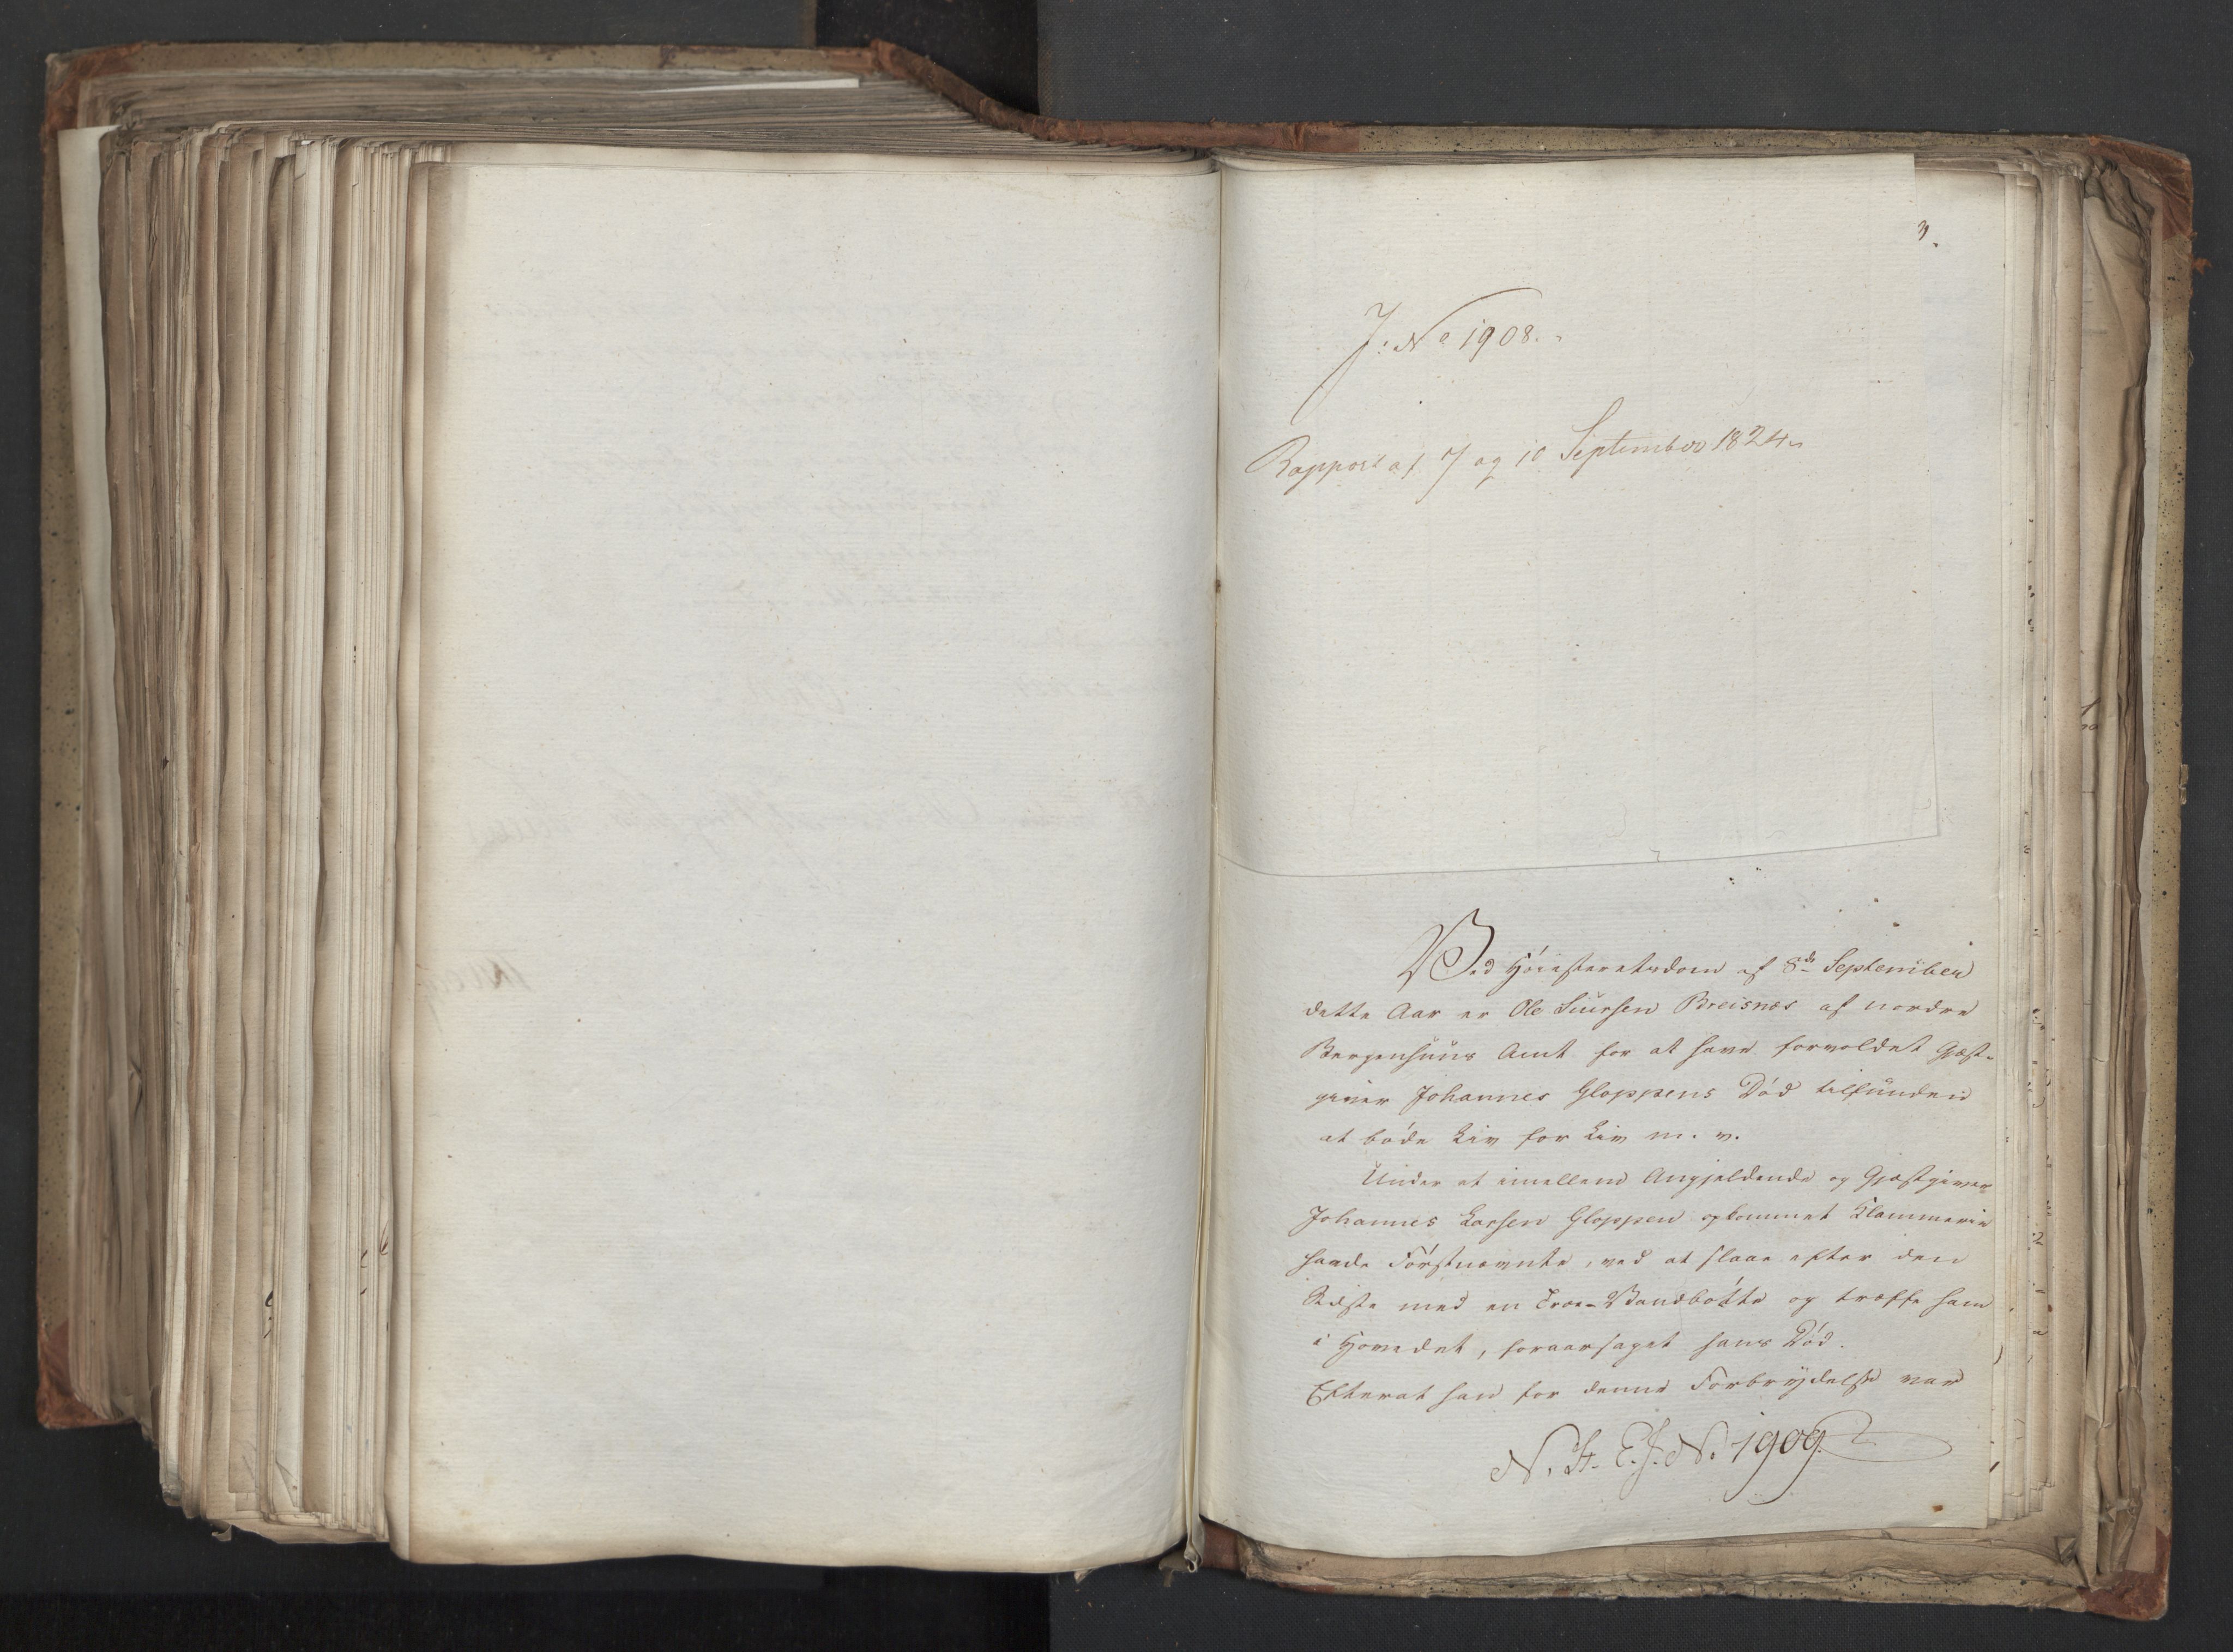 J: No 1908.
Rapport af 7 og 10 September 1824
Ved Høiesteretsdom af 8de September
dette Aar er Ole Siursen Breisnæs af nordre
Bergenhuus Amt for at have forvoldet Gjæst-
giver Johannes Gloppens Død tilfunden
at bøde Liv for Liv m. v.
Under et imellem Angjeldende og Gjæstgiver
Johannes Larsen Gloppen opkommet Klammerie
havde Førstnævnte, ved at slaae efter den
Sidste med en Træe-Vandbøtte og træffe ham
i Hovedet, foraarsaget hans Død.
Efterat han for denne Forbrydelse var
N. H. E. J. No. 1909